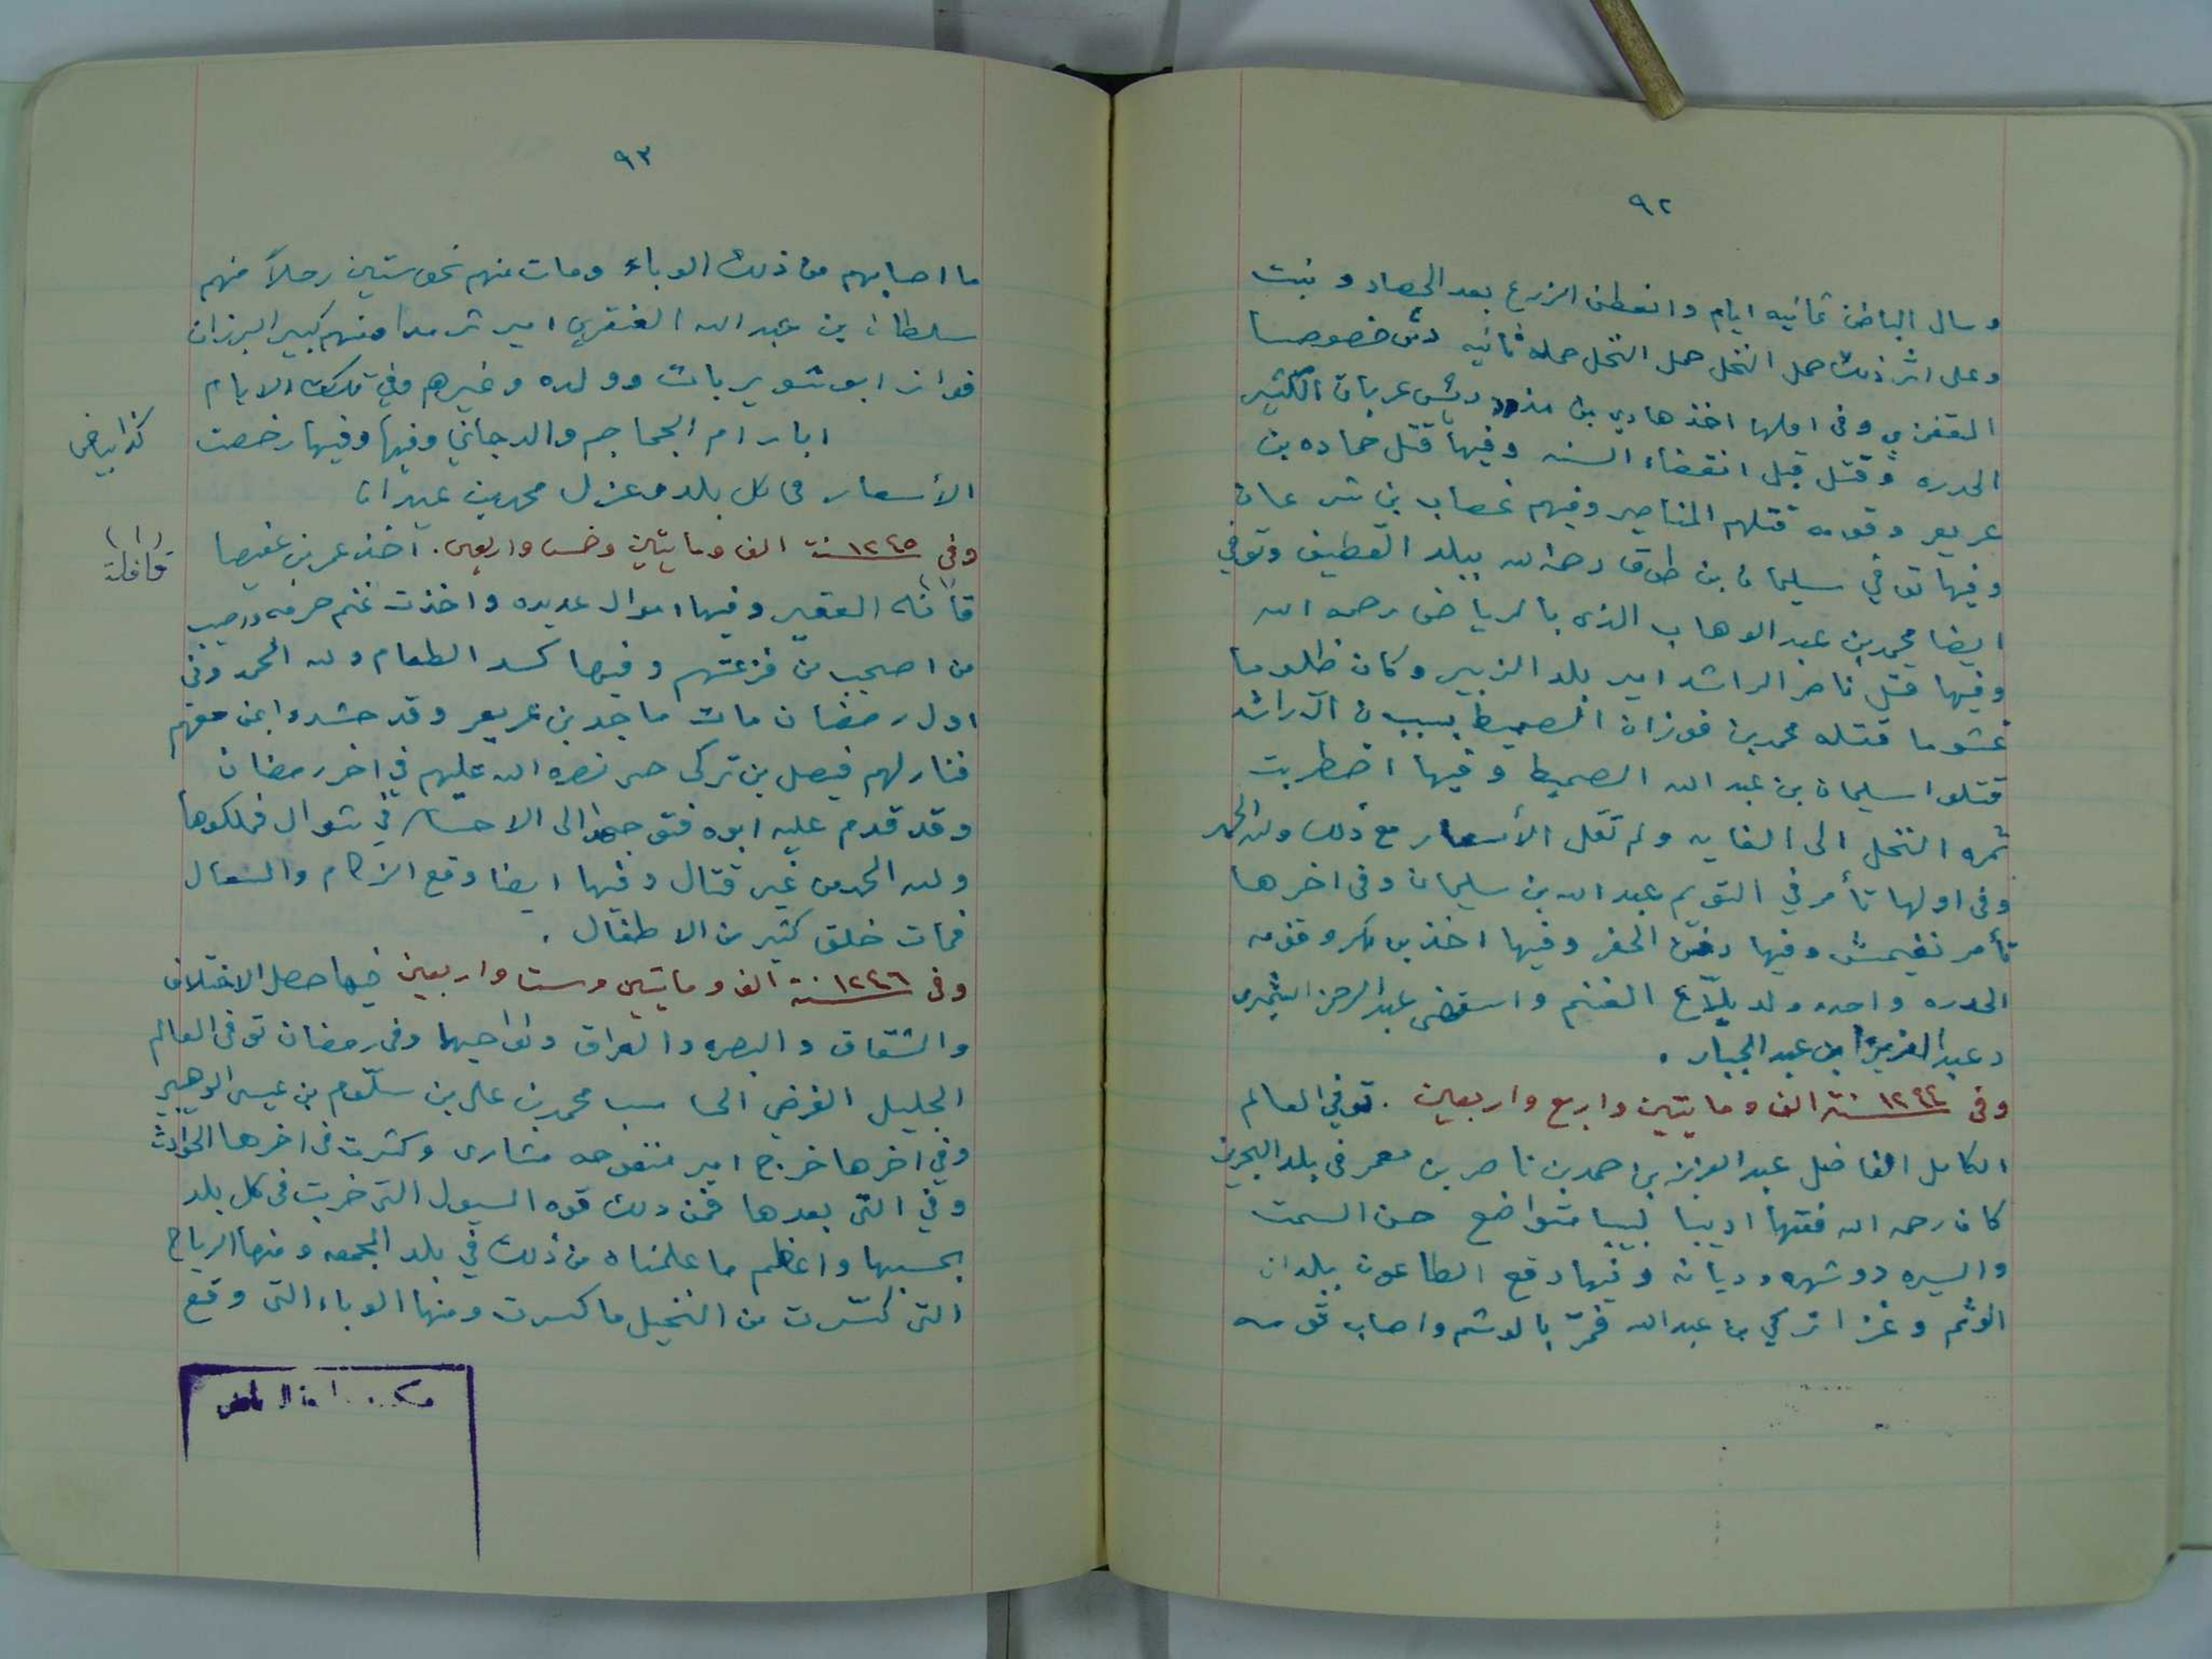 ٩٢
وسال الباطن ثمانيه ايام وانعطن الزرع بعد الحصاد ونبت
وعلى اثر ذلك حمل النخل حمل النخل حمله ثانيه دق خصوصا
المقفزي وفى اولها اخذ هادي بن مذود رئيس عربان الكثير
الحدره وقتل قبل انقضاء السنه وفيها قتل حماده بن
عريعر وقومه قتلهم المناصير وفيهم غصاب بن شرعان
وفيها توفي سليمان بن طوق رحمه الله ببلد القطيف وتوفي
ايضا محمد بن عبد الوهاب الذى بالرياض رحمه الله
وفيها قتل ناصر الراشد امير بلد الزبير وكان ظلوما
غشوما قتله محمد بن فوزان الصميط بسبب ان آل راشد
قتلوا سليمان بن عبد الله الصميط وفيها اضطربت
ثمره النخل الى الغايه ولم تغل الأسعار مع ذلك ولله الحمد
وفى اولها تأمر في التويم عبد الله بن سليمان وفى اخرها
تأمر نغيمش وفيها دفن الحفر وفيها اخذ وقومه
الحدره واحده ولد بلّاع الغنم واستقضى عبد الرحمن الثميرى
وعبد العزيز ابن عبد الجبار .
وفى سنة ١٢٩٤ الف ومايتين واربع واربعين . توفي العالم
الكامل الفاضل عبد العزيز بن احمد بن ناصر بن معمر فى بلد البحرين
كان رحمه الله فقيها اديبا لبيبا متواضع حسن السمت
والسيره ذو شهره وديانه وفيها وقع الطاعون ببلدان
الوشم وغزا تركي بن عبد الله فمرّ بالوشم واصاب قومه
٩٣
ما اصابهم من ذلك الوباء ومات منهم نحو ستين رجلاً منهم
سلطان بن عبد الله العنقري امير ثرمدا ومنهم كبير البرزان
فواز ابو شويربات وولده وغيرهم وفي تلك الايام
ابارام الجماجم والدجاني وفيها وفيها رخصت
كذا بياض
الأسعار فى كل بلد وعزل محمد بن عبدان
وفى سنة ١٢٤٥ الف ومايتين وخمس واربعين . آخذ عمر بن غفيصا
قافله العقير وفيها اموال عديده واخذت غنم حرمه واصيب
(١) قافلة
من اصيب من فزعتهم وفيها كسد الطعام ولله الحمد وفى
اول رمضان مات ماجد بن عريعر وقد حشدوا بمن معهم
فثار لهم فيصل بن تركى حتى نصره الله عليهم في اخر رمضان
وقد قدم عليه ابوه فتوجها الى الاحساء في شوال فملكوها
ولله الحمد من غير قتال وفيها ايضا وقع الزكام والسعال
فمات خلق كثير من الاطفال .
وفى سنة ١٢٤٦ الف ومايتين وست واربعين فيها حصل الاختلاف
والشقاق والبصره والعراق ونواحيها وفى رمضان توفى العالم
الجليل الفرضي الحاسب محمد بن على بن سلّوم بن عيسى الوهيبي
وفي اخرها خرج امير منفوحه مشارى وكثرت فى اخرها الحوادث
وفي التى بعدها فمن ذلك قوه السيول التى خربت فى كل بلد
بحسبها واعظم ما علمناه من ذلك في بلد المجمعه ومنها الرياح
التى كسّرت من النخيل ما كسرت ومنها الوباء التى وقع